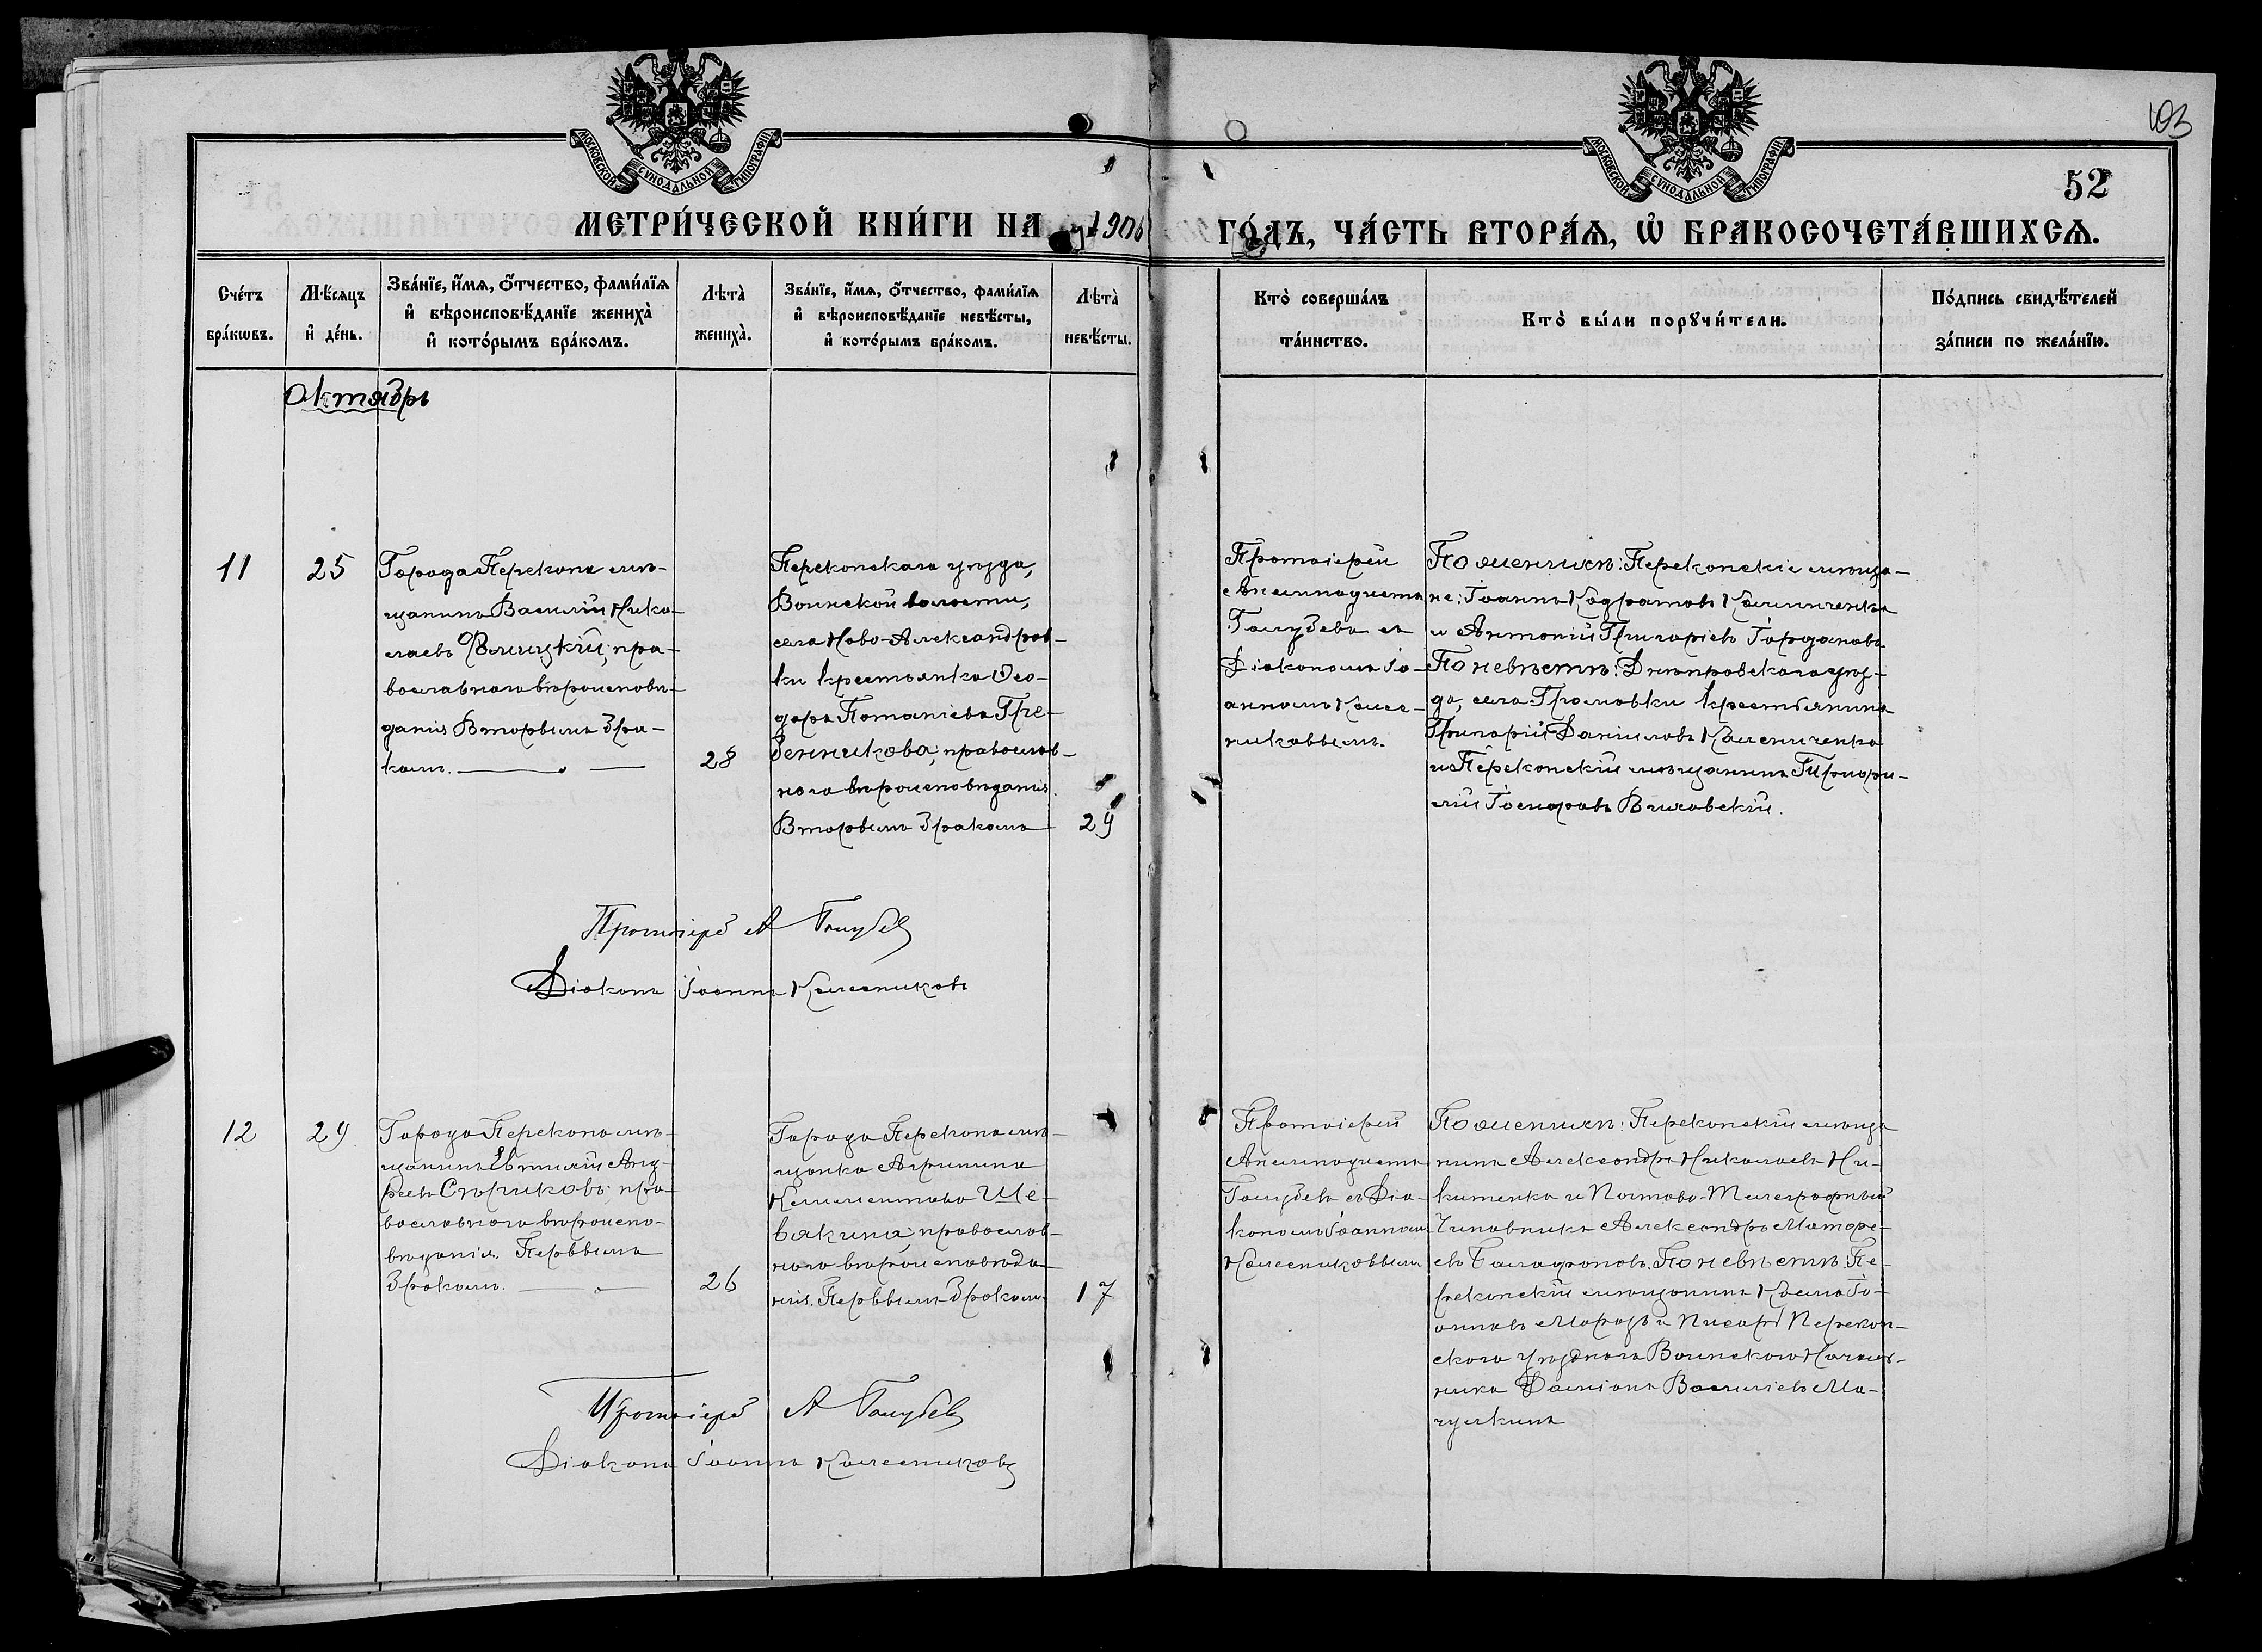 103
52
МОСКОВСКОЙ СУНОДАЛЬНОЙ ТИПОГРАФІИ
МОСКОВСКОЙ СУНОДАЛЬНОЙ ТИПОГРАФІИ
МЕТРИ́ЧЕСКОЙ КНИ́ГИ НА 1906 ГО́ДЪ, ЧА́СТЬ ВТОРА́Ѧ, Ѽ БРАКОСОЧЕТА́ВШИХСѦ.
Сче́тъ бра́кωвъ.
Мѣ́сяцъ и҆ де́нь.
Зва́нїе, и҆́мѧ, ѻ҆́тчество, фами́лїѧ
и҆ вѣроисповѣ́данїе жениха̀
и҆ кото́рымъ бра́комъ.
Лѣта̀ жениха̀.
Зва́нїе, и҆́мѧ, ѻ҆́тчество, фами́лїѧ
и҆ вѣроисповѣ́данїе невѣ́сты,
и҆ кото́рымъ бра́комъ.
Лѣта̀ невѣ́сты.
Кто̀ соверша́лъ та́инство.
Кто̀ бы́ли порꙋчи́тели.
По́дпись свидѣ́телей за́писи по жела́нїю.
Октябрь
11
25
Города Перекопа мѣ-
щанинъ Василій Нико-
лаевъ пра-
вославнаго вѣроисповѣ-
данія Вторымъ бра-
комъ.
28
Перекопскаго уѣзда,
Воинской волости,
села Ново-Александров-
ки крестьянка Ѳео-
дора Потапіева Гре-
бенникова, православ-
наго вѣроисповѣданія.
Вторымъ бракомъ
29
Протоіерей
Анемподистъ
Голубевъ съ
Діакономъ Іо-
анномъ Колес-
никовымъ.
По женихѣ: Перекопскіе мѣща-
не: Іоаннъ Кодратовъ Калиниченко
и Антоній Григоріевъ Гордановъ
По невѣстѣ: Днѣпровскаго уѣз-
да, села Громовки крестьянинъ
Григорій Даніиловъ Калениченко
и Перекопскій мѣщанинъ Григорі-
й Вишовскій.
Протоіерей А Голубевъ
Діаконъ Іоаннъ Колесниковъ
12
29
Города Перекопа мѣ-
щанинъ Евтихій Анд-
реевъ Стариковъ, пра-
вославнаго вѣроиспо-
вѣданія. Первымъ
бракомъ.
26
Города Перекопа мѣ-
щанка Агрипина
Климентова Ше-
вякина, православ-
наго вѣроисповѣда-
нія. Первымъ бракомъ
17
Протоіерей
Анемподистъ
Голубевъ съ Діа-
кономъ Іоанномъ
Колесниковымъ
По женихѣ: Перекопскій мѣща-
нинъ Александръ Николаевъ Ни-
китенко и Почтово-Телеграфный
Чиновникъ Александръ Матѳе-
евъ Галафоновъ. По невѣстѣ: Пе-
рекопскій мѣщанинъ Косма Іо-
анновъ Морозъ и Писарь Перекоп-
скаго Уѣзднаго Воинскаго Началь-
ника Даміанъ Василіевъ Ма-
чулкинъ
Протоіерей А Голубевъ
Діаконъ Іоаннъ Колесниковъ